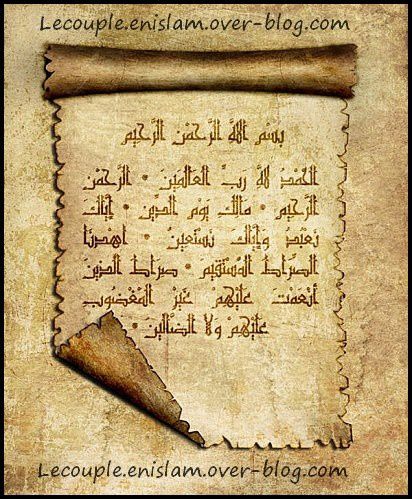 Lecouple.enislam.over-blog.com
بسْمِ اللَّهِ الرَّحْمَنِ الرَّحِيمِ
الحَمْدُ للَّهِ رَبِّ العَالَمِينَ • الرَّحْمَنِ
الرَّحِيمِ • مَالِكِ يَوْمِ الدِّينِ • إِيَّاكَ
نَعْبُدُ وَإِيَّاكَ نَسْتَعِينُ • اهْدِنَا
الصِّرَاطَ المُسْتَقِيمَ • صِرَاطَ الَّذِينَ
أَنْعَمْتَ عَلَيْهِمْ غَيْرِ المَغْضُوبِ
عَلَيْهِمْ وَلَا الضَّالِّينَ •
Lecouple.enislam.over-blog.com